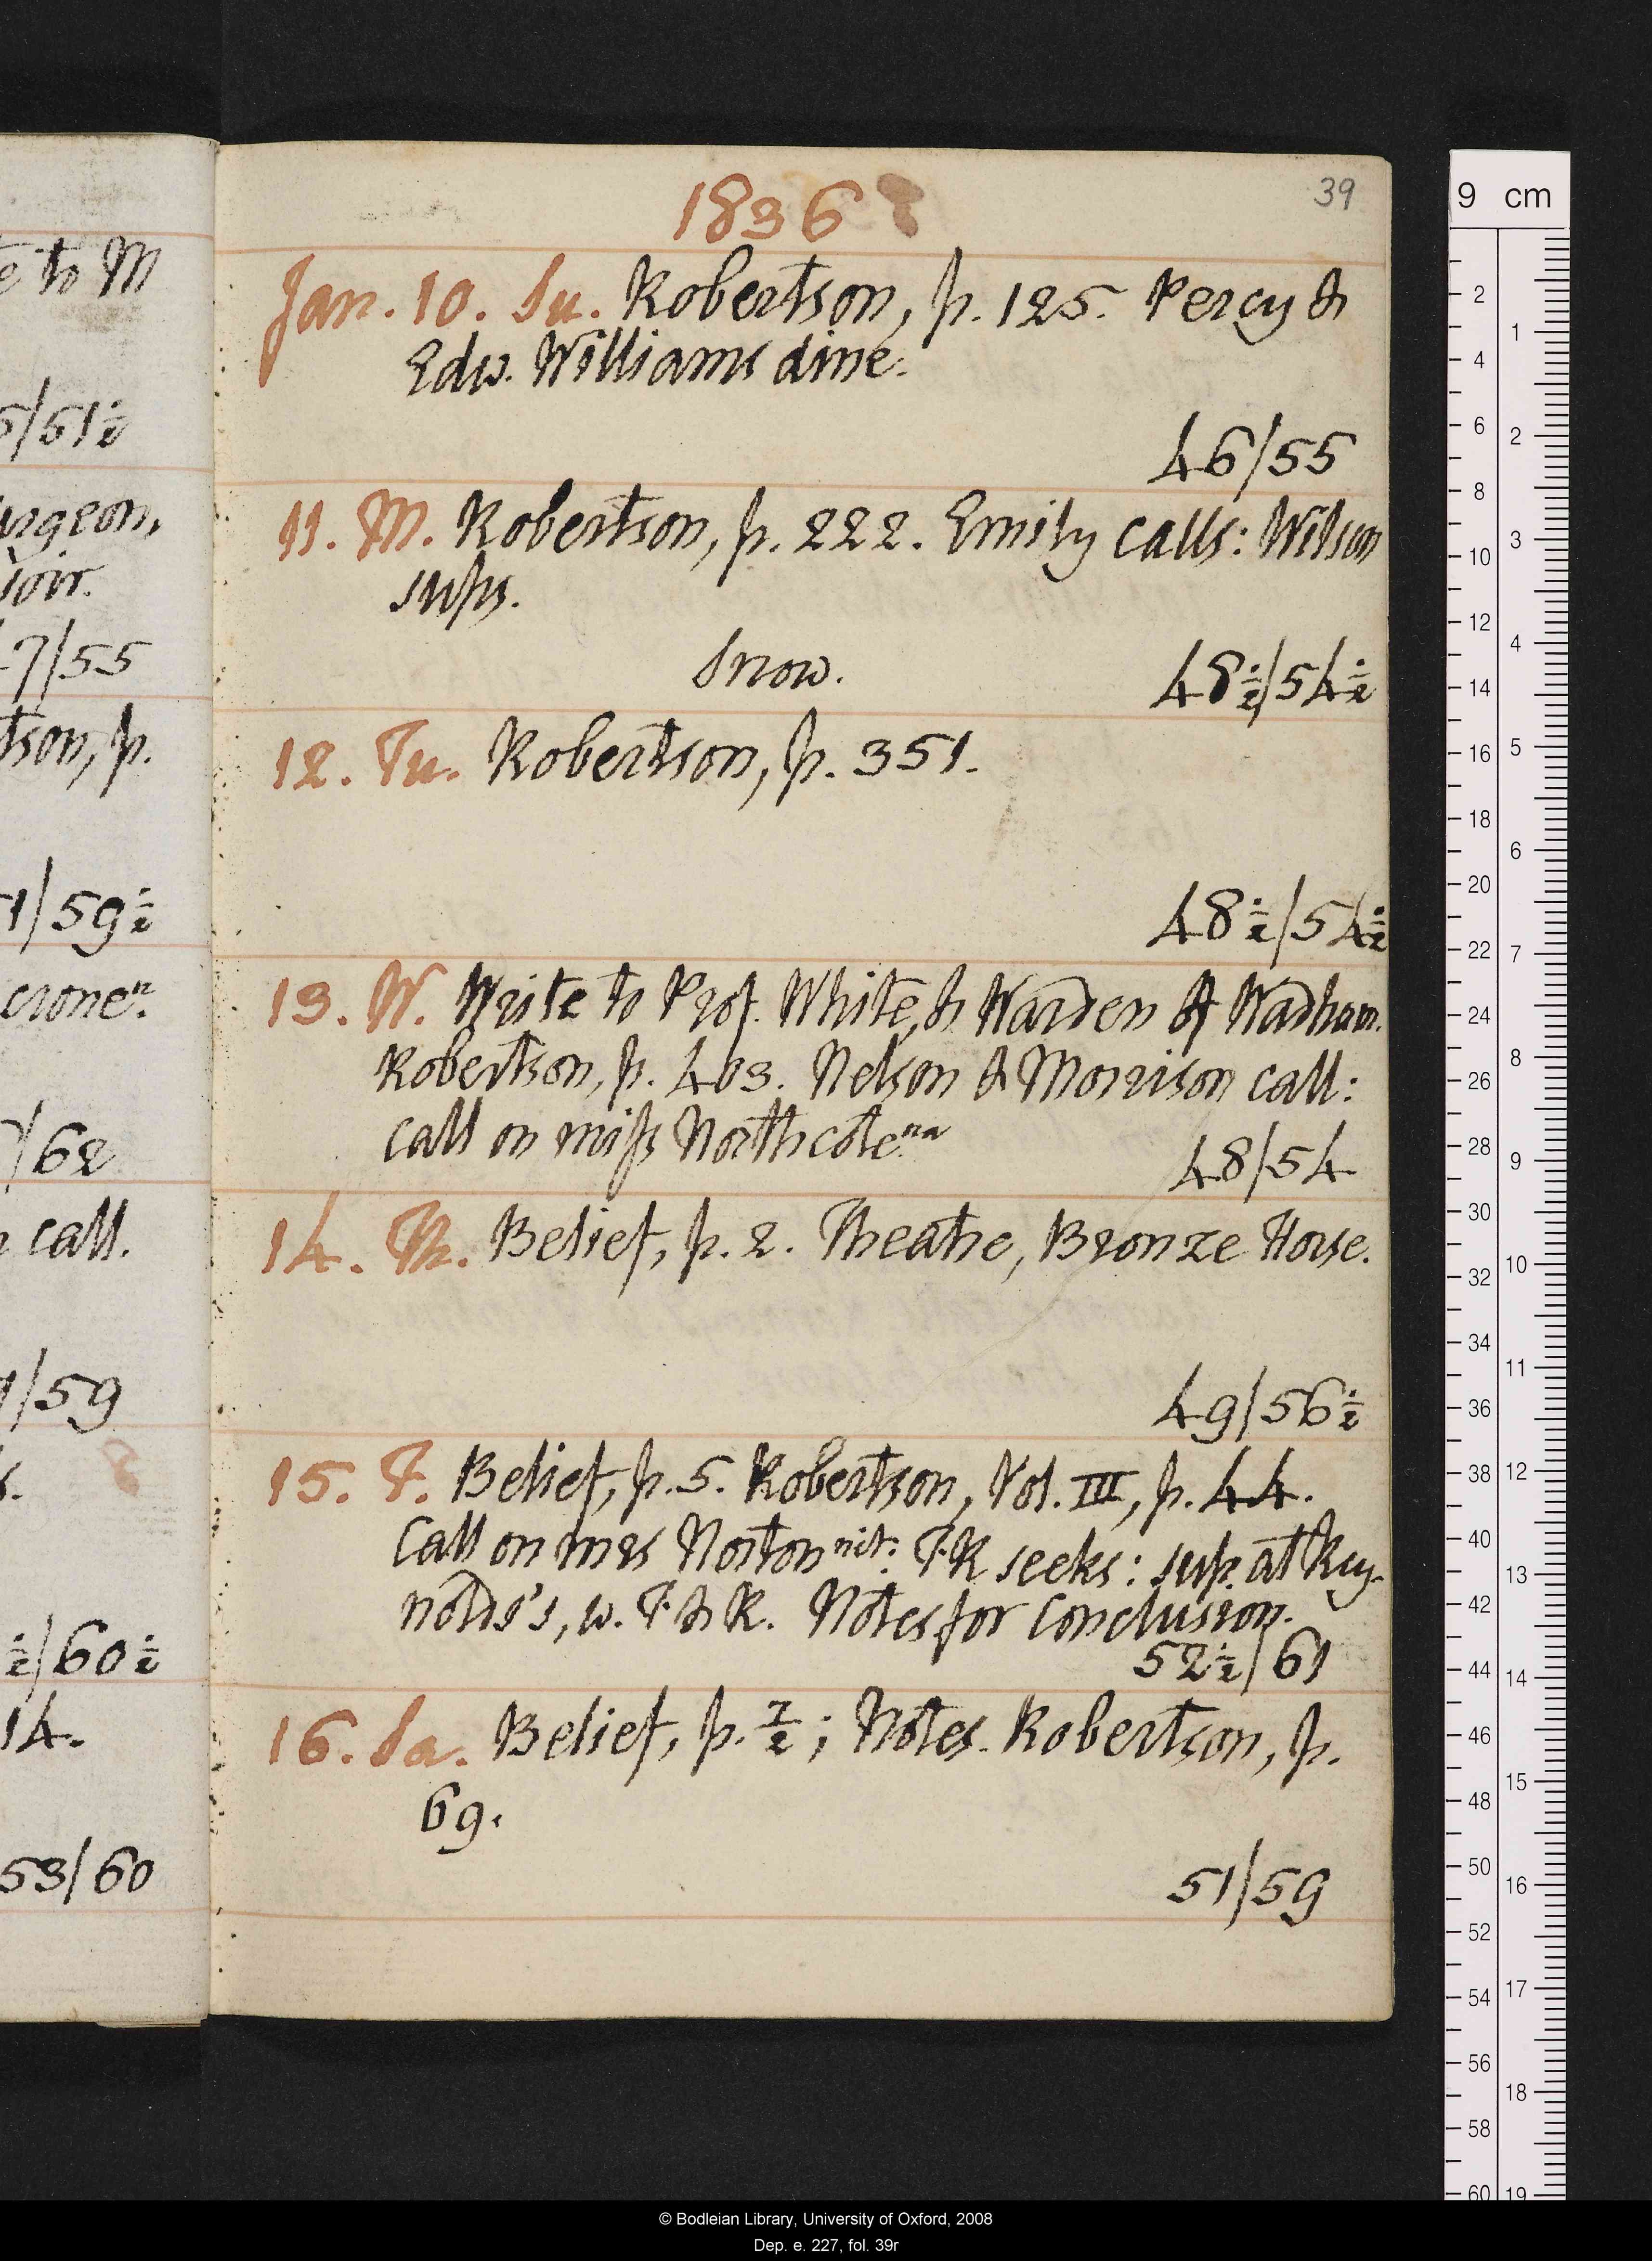 e to M
5/51½
urgeon,
ioir.
47/55
tson, p.
1/59½
crone n.
/62
n call.
1/59
s.
½/60½
14.
53/60
1836
39
Jan. 10. Su. Robertson, p. 125. Percy &
Edw. Williams dine.
46/55
11. M. Robertson, p. 222. Emily calls: Wilson
sups.
Snow.
48½/54½
12. Tu. Robertson, p. 351.
48½/54½
13. W. Write to Prof. White, & Warden of Wadham.
Robertson, p. 403. Nelson & Morrison call:
call on miss Northcote na
48/54
14. Th. Belief, p. 2. Theatre, Bronze Horse.
49/56½
15. F. Belief, p. 5. Robertson, Vol. III, p. 44.
Call on mrs Norton nit: F.K seeks: sup at Rey-
nolds's, w. F. & K. Notes for Conclusion.
52½/61
16. Sa. Belief, p. 7/2; Notes. Robertson, p.
69.
51/59
9 cm
2
4
6
8
10
12
14
16
18
20
22
24
26
28
30
32
34
36
38
40
42
44
46
48
50
52
54
56
58
60
1
2
3
4
5
6
7
8
9
10
11
12
13
14
15
16
17
18
19
© Bodleian Library, University of Oxford, 2008
Dep. e. 227, fol. 39r